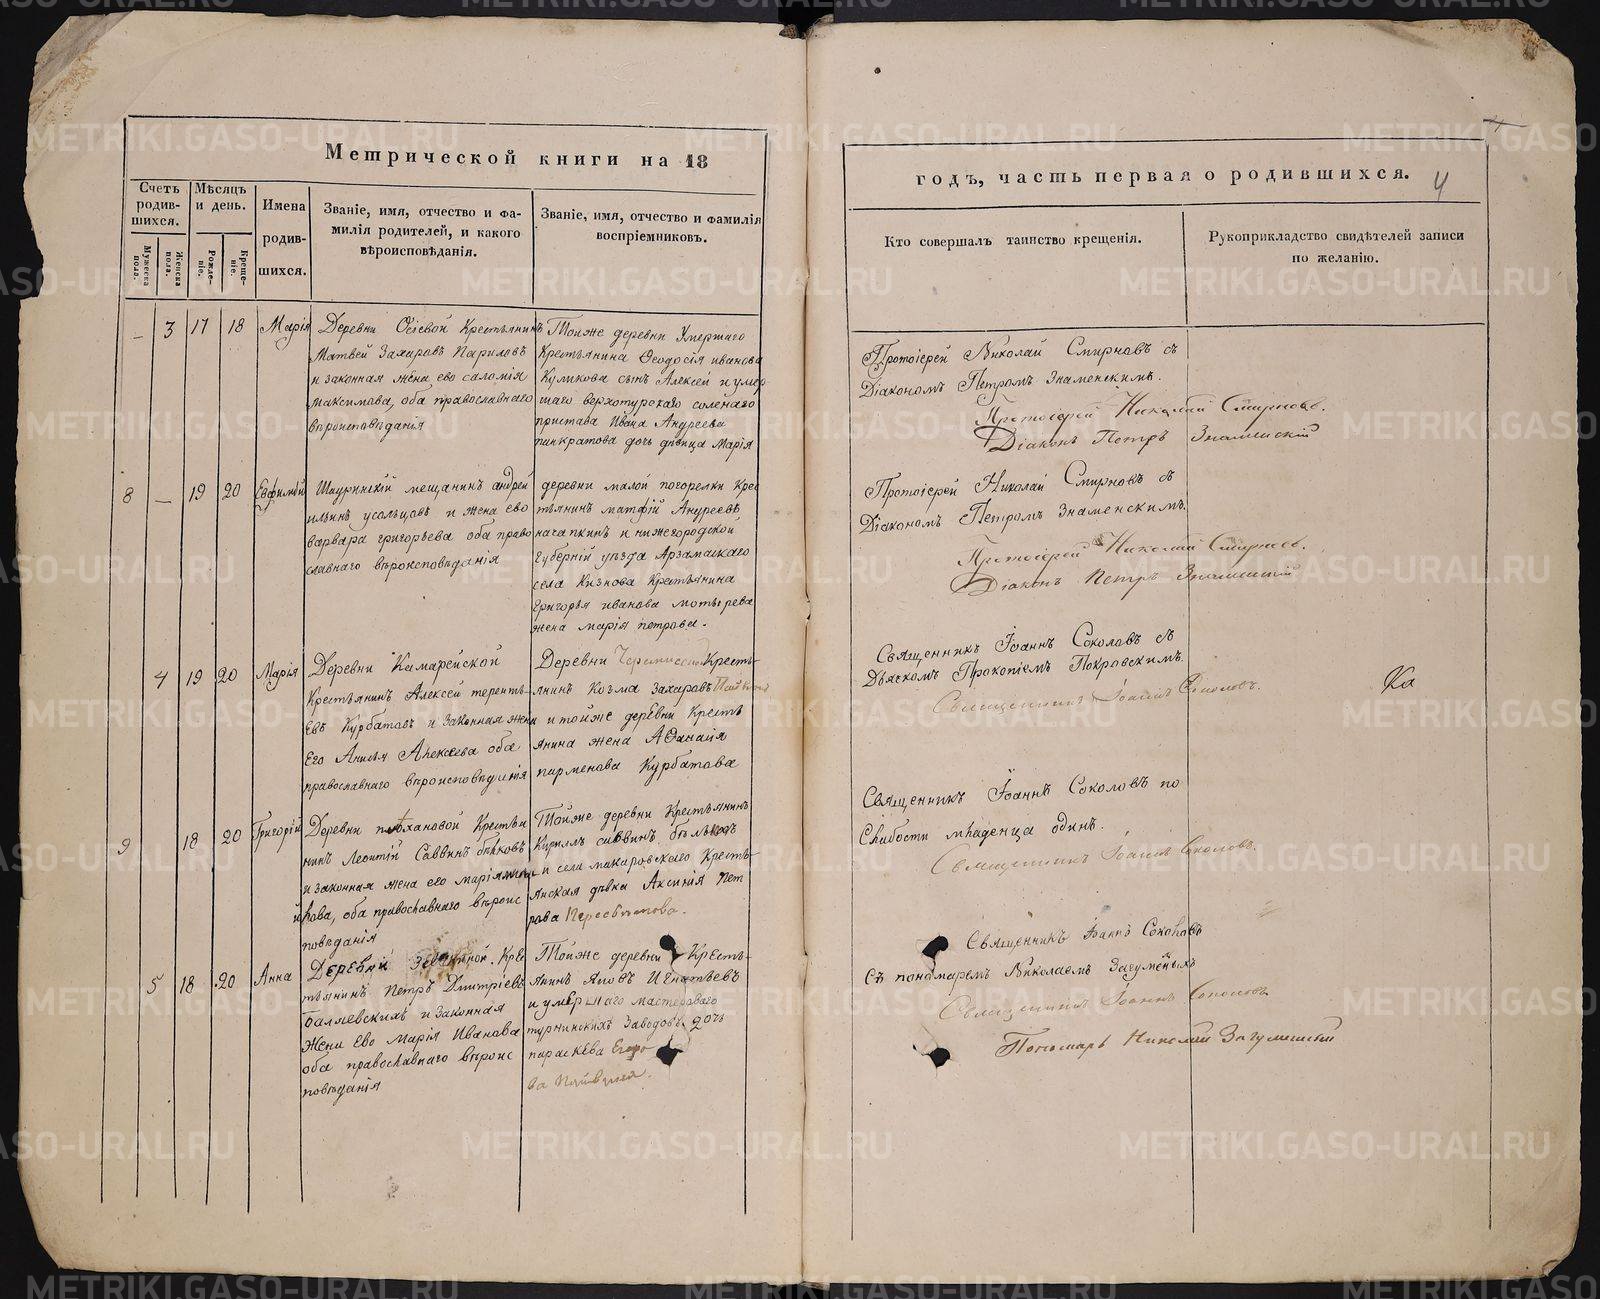 Метрической книги на 18
Счетъ родив-шихся.
Мѣсяцъ и день.
Имена родив-шихся.
Званіе, имя, отчество и фа-
милія родителей, и какого
вѣроисповѣданія.
Званіе, имя, отчество и фамилія
воспріемниковъ.
Мужеска пола.
Женска пола.
Рожде-ніе.
Креще-ніе.
— 3 17 18 Марія
Деревни Крестьянинъ
Матвей Захаровъ
и законная жена ево саломія
Максимова, оба православнаго
вѣроисповѣданія
Тойже деревни Умершаго
Крестьянина Ѳеодосія иванова
Куликова сынъ Алексей и умер
шаго верхотурскаго соленаго
пристава Ивана Андреева
панкратова дочь дѣвица Марія
8 — 19 20 Евфимій
мещанинъ андрей
ильинъ усольцовъ и жена ево
варвара григорьева оба право
славнаго вѣроисповѣданія
деревни малой погорелки Крес
тьянинъ матфій Андреевъ
начапкинъ и нижегородской
Губерніи уѣзда Арзамаскаго
села Крестьянина
Григорья иванова
жена марія петрова.
4 19 20 Марія
Деревни Камарейской
Крестьянинъ Алексей теренть-
евъ Курбатовъ и Законная жена
Его Алексеева оба
православнаго вѣроисповѣданія
Деревни Кресть-
янинъ Козма Захаровъ
и тойже деревни Кресть
янина жена Аѳанасія
парменова Курбатова
9 18 20 Григорій
Деревни Крестьян
нинъ Леонтій Саввинъ
и законная жена его марія
оба православнаго вѣроис
повѣданія
Тойже деревни Крестьянинъ
Кирилъ саввинъ
и села макаровскаго Кресть-
янская дѣвка Аксинія Пет
рова Пересвѣтова.
5 18 20 Анна
Деревни Крес
тьянинъ Петръ Дмитріевъ
и Законная
Жена Ево Марія Иванова
оба православнаго вѣроис
повѣданія
Тойже деревни Кресть-
янинъ Игнатьевъ
и умершаго мастероваго
турьинскихъ Заводовъ дочь
параскева Егоро
ва
годъ, часть первая о родившихся.
4
Кто совершалъ таинство крещенія.
Рукоприкладство свидѣтелей записи
по желанію.
Протоіерей Николай Смирновъ съ
Діакономъ Петромъ Знаменскимъ.
Протоіерей Николай Смирновъ.
Діаконъ Петръ Знаменскій
Протоіерей Николай Смирновъ съ
Діакономъ Петромъ Знаменскимъ.
Протоіерей Николай Смирновъ.
Діаконъ Петръ Знаменскій
Священникъ Іоаннъ Соколовъ съ
Дьячкомъ Прокопіемъ Покровскимъ.
Священникъ Іоаннъ Соколовъ.
Ка
Священникъ Іоаннъ Соколовъ по
Слабости младенца одинъ.
Священникъ Іоаннъ Соколовъ.
Священникъ Іоаннъ Соколовъ
Съ пономаремъ Николаемъ
Священникъ Іоаннъ Соколовъ
Пономарь Николай
METRIKI.GASO-URAL.RU